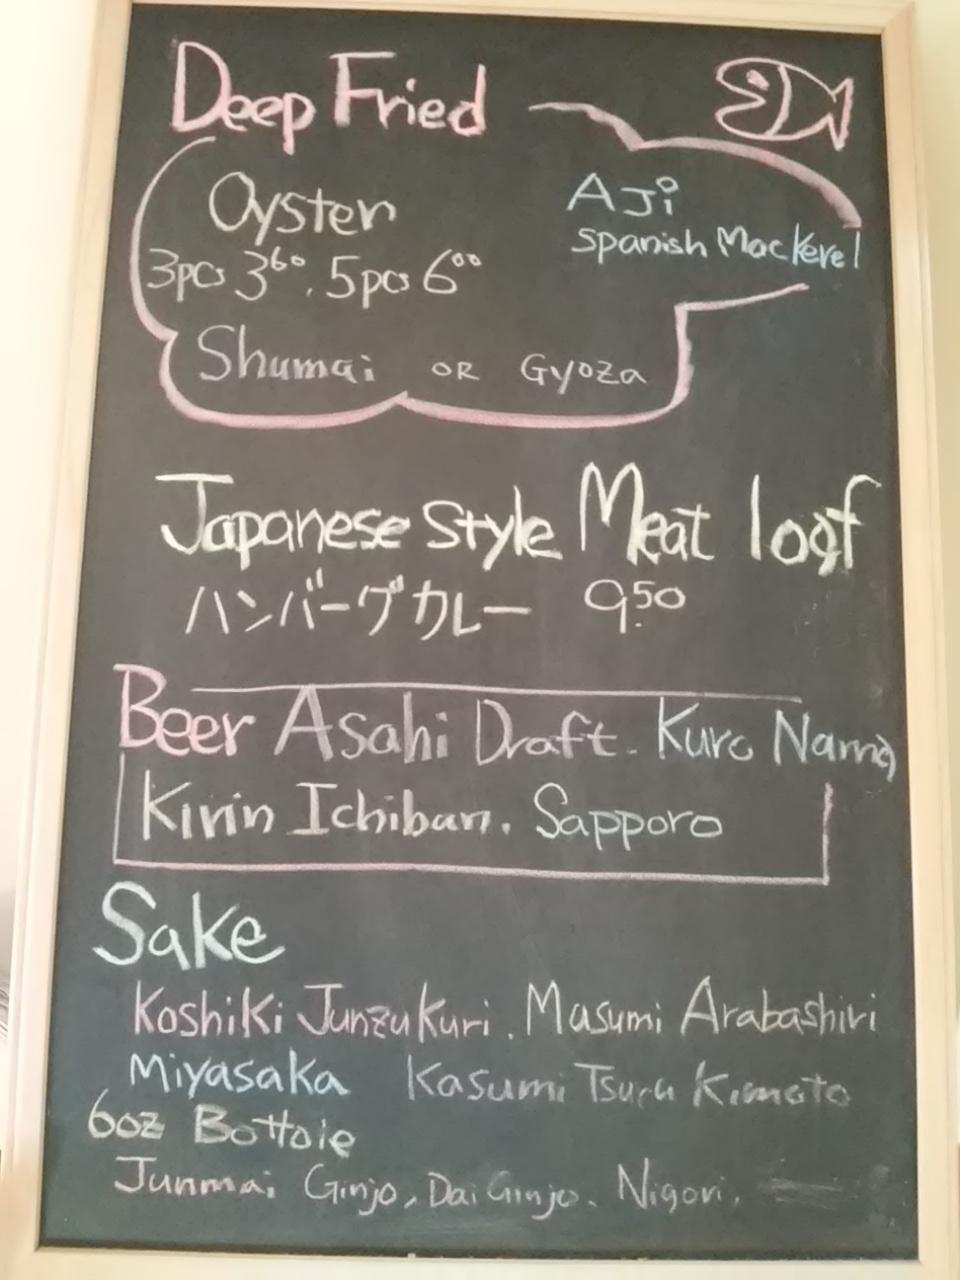 Deep Fried
Oyster
3pcs 3⁶⁰. 5pcs 6⁰⁰
AJi
Spanish Mackerel
Shumai OR Gyoza
Japanese Style Meat loaf
ハンバーグカレー 9.50
Beer Asahi Draft. Kuro Nama
Kirin Ichiban. Sapporo
Sake
Koshiki Junzukuri. Masumi Arabashiri
Miyasaka Kasumi Tsuru Kimoto
6oz Bottole
Junmai Ginjo, Dai Ginjo. Nigori.